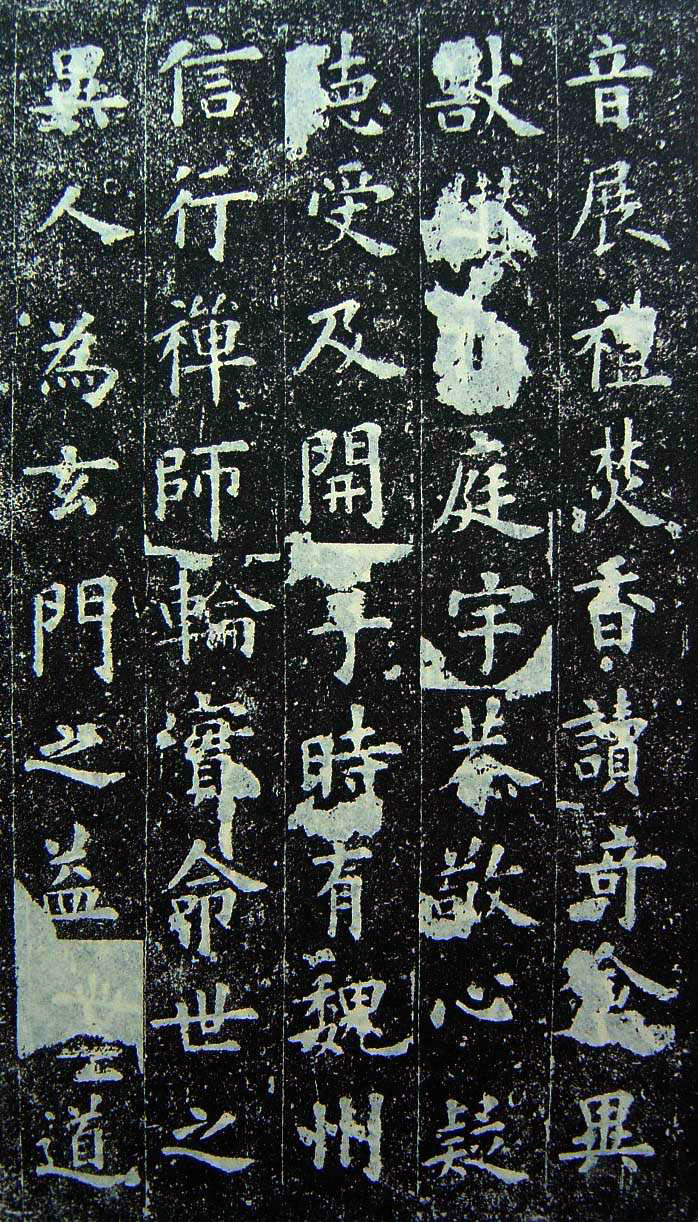 音展禮焚香讀奇禽異
獸庭宇恭敬心疑
聴受及開于時有魏州
信行禪師輪實命世之
異人為玄門之益道